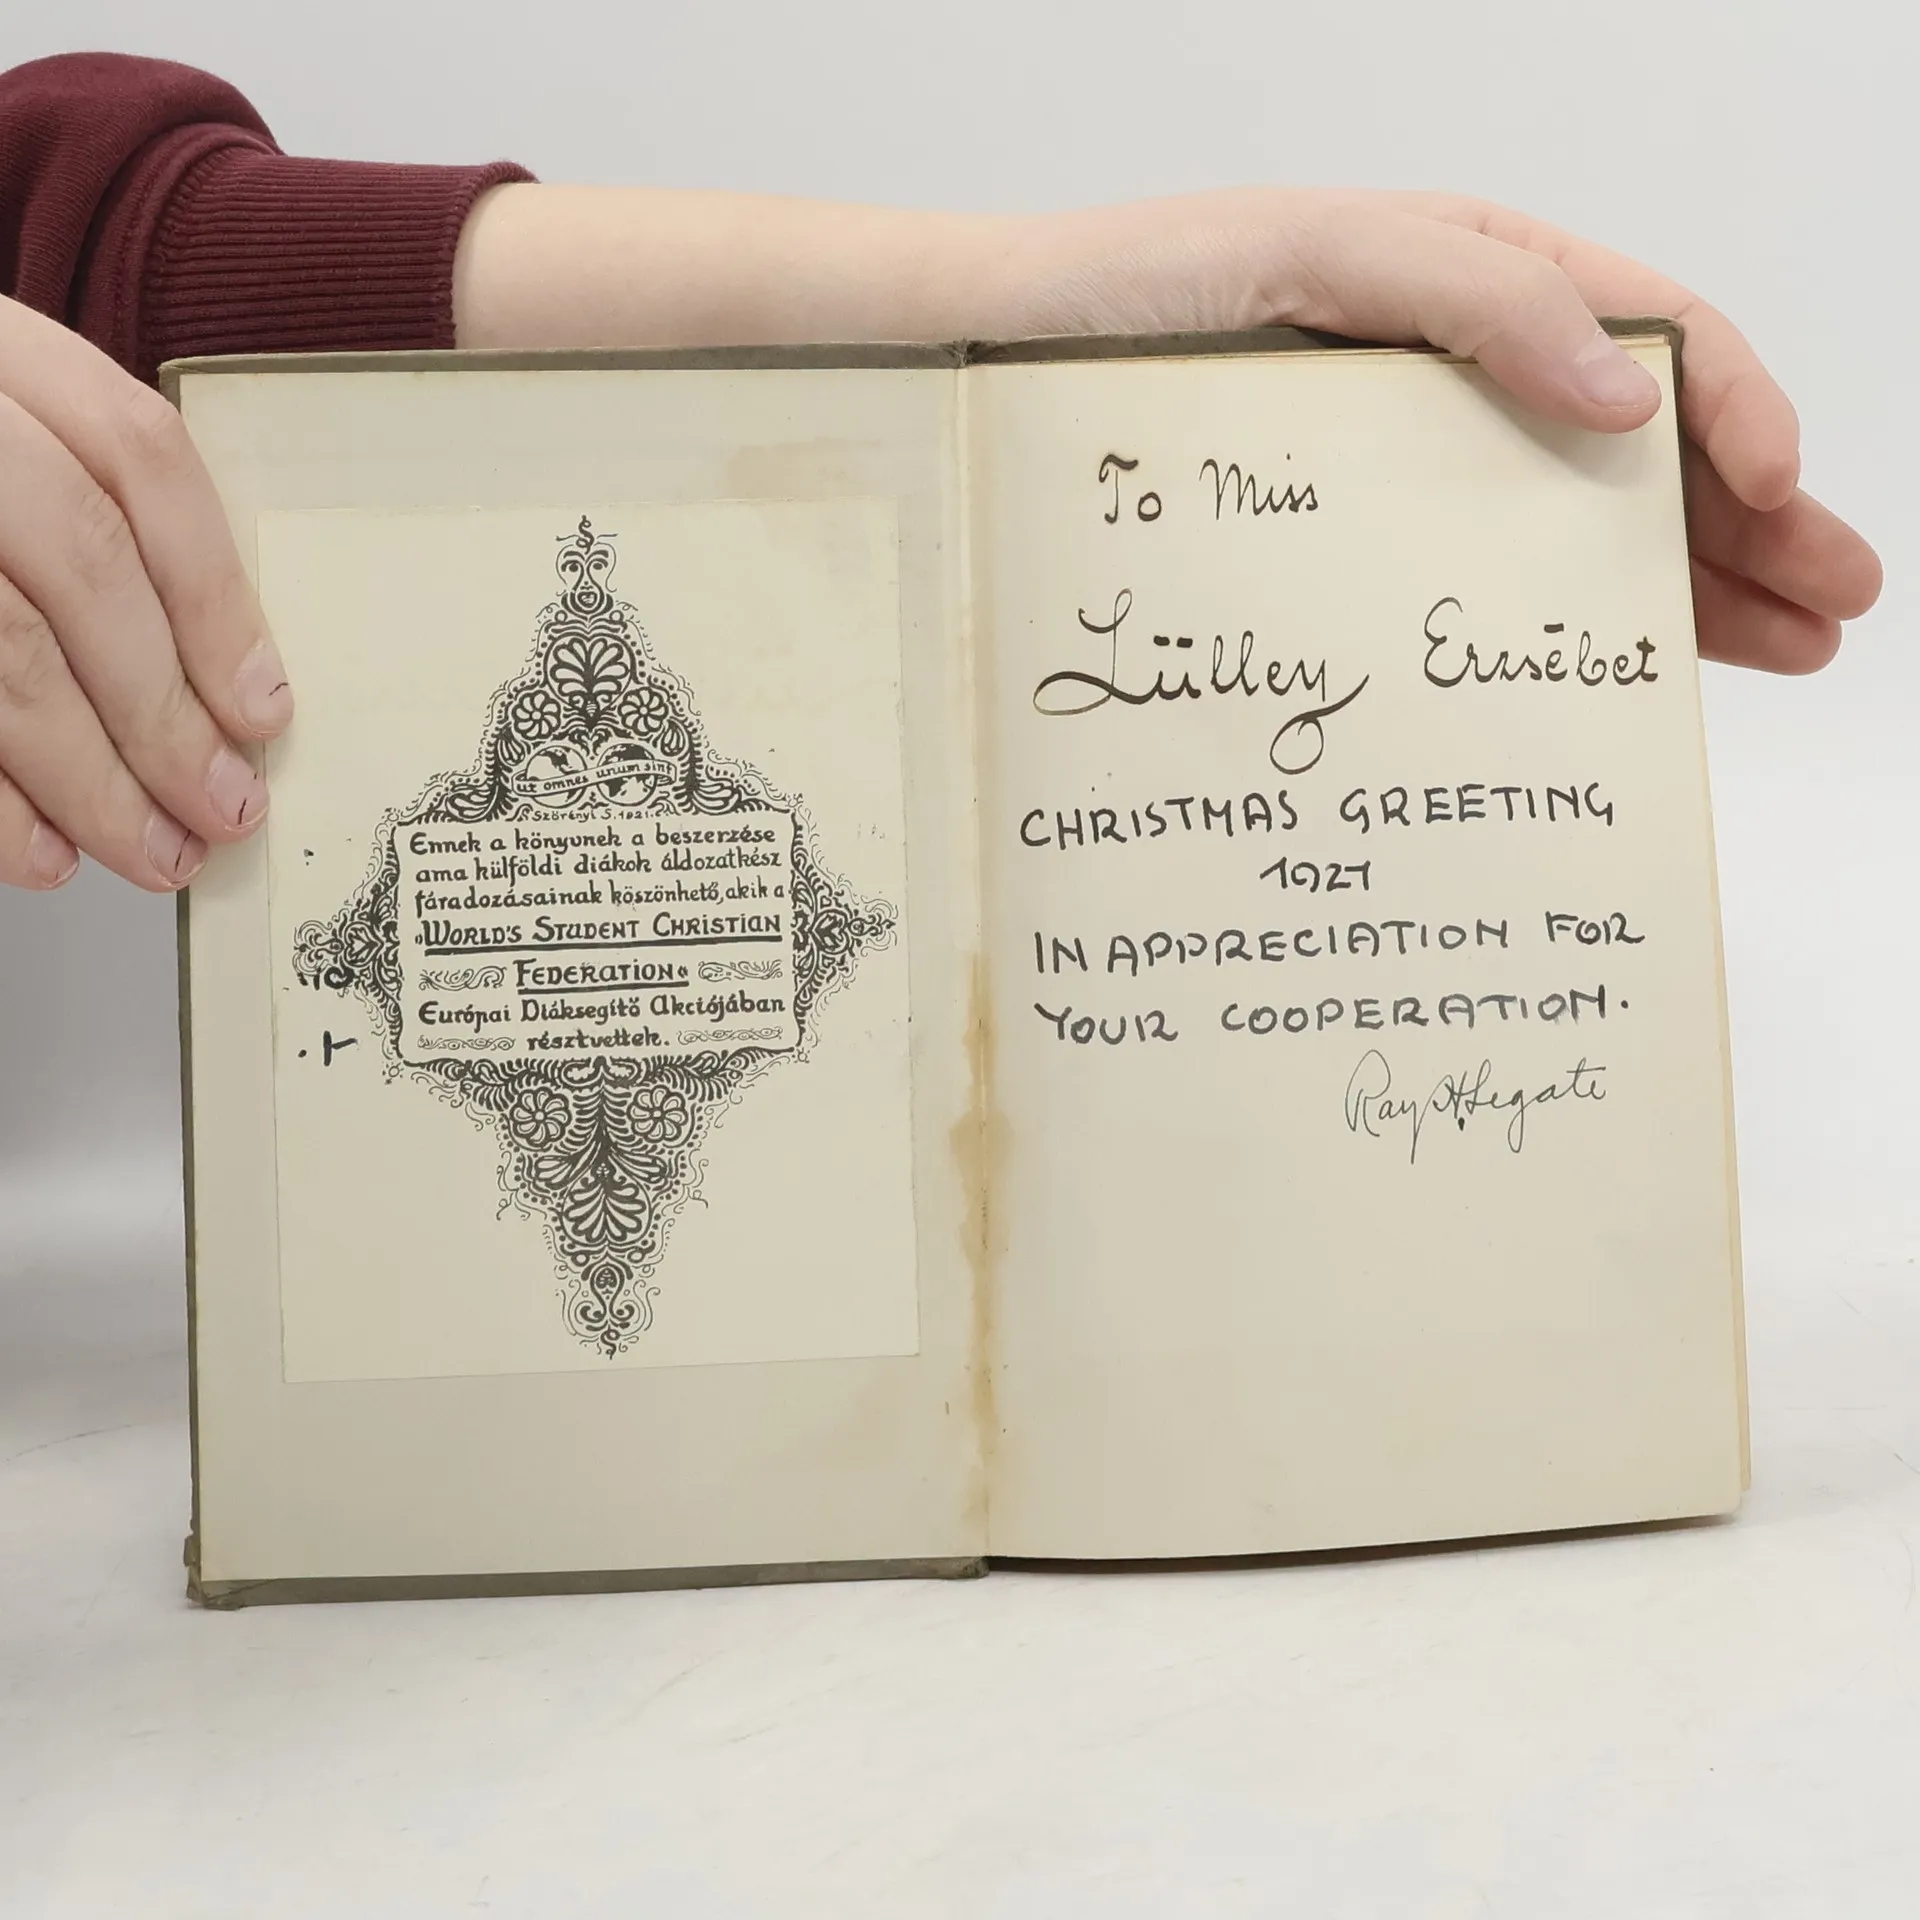 ut omnes unum sint
Szörényi S. 1921.
Ennek a könyvnek a beszerzése
ama külföldi diákok áldozatkész
fáradozásainak köszönhető, akik a
„WORLD'S STUDENT CHRISTIAN
FEDERATION“
Európai Diáksegítő Akciójában
résztvettek.
To Miss
Lülley Erzsēbet
CHRISTMAS GREETING
1921
IN APPRECIATION FOR
YOUR COOPERATION.
Ray H. Legate